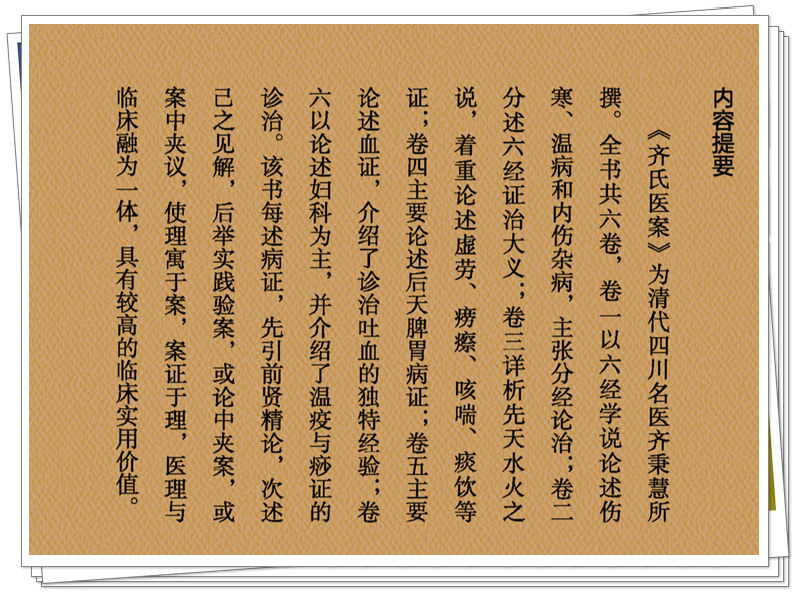 内容提要
《齐氏医案》为清代四川名医齐秉慧所
撰。全书共六卷，卷一以六经学说论述伤
寒、温病和内伤杂病，主张分经论治；卷二
分述六经证治大义；卷三详析先天水火之
说，着重论述虚劳、痨瘵、咳喘、痰饮等
证；卷四主要论述后天脾胃病证；卷五主要
论述血证，介绍了诊治吐血的独特经验；卷
六以论述妇科为主，并介绍了温疫与痧证的
诊治。该书每述病证，先引前贤精论，次述
己之见解，后举实践验案，或论中夹案，或
案中夹议，使理寓于案，案证于理，医理与
临床融为一体，具有较高的临床实用价值。